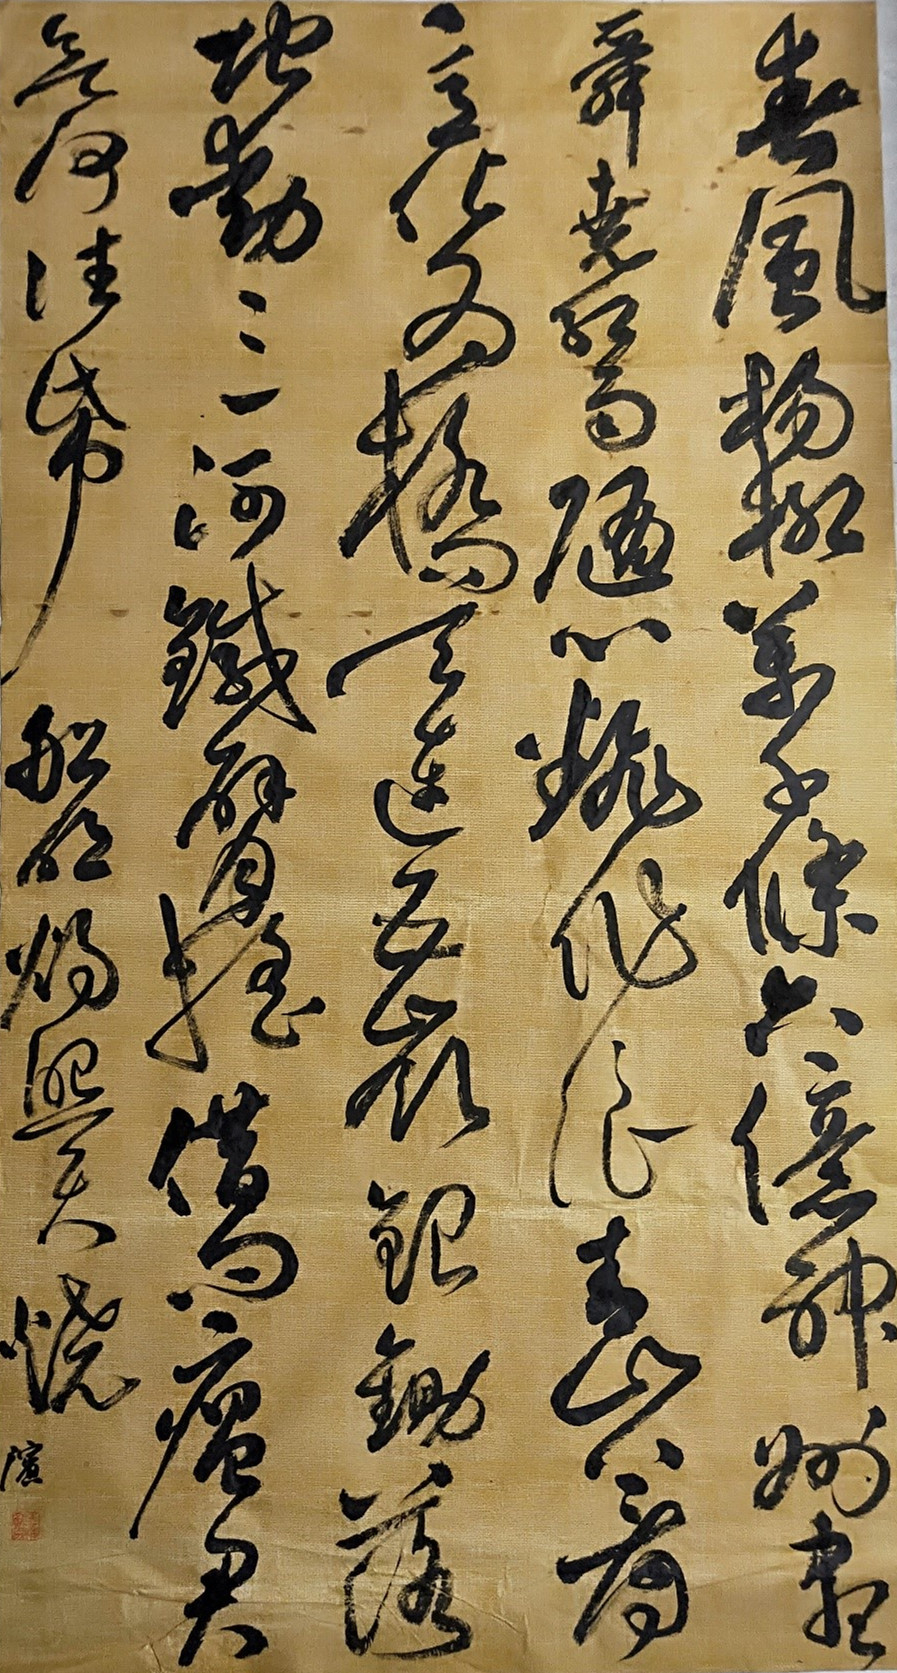 春風楊柳萬千條六億神州盡
舜堯紅雨隨心翻作浪青山着
意化為橋天連五嶺銀鋤落
地動三河鐵臂搖借問瘟君
欲何往帋船明燭照天燒